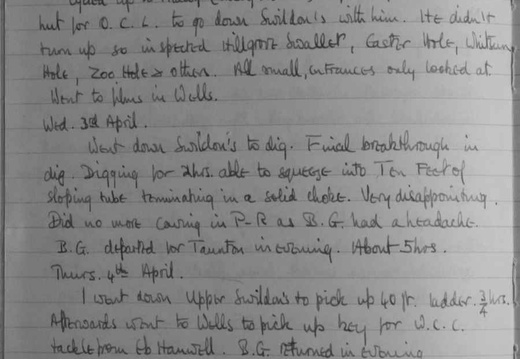 hut for O.C.L. to go down Swildon's with him. He didn't
turn up so inspected Hillgrove Swallet, Easter Hole, Whitsun
Hole, Zoo Hole & others. All small, entrances only looked at.
Went to films in Wells.
Wed. 3rd April.
Went down Swildon's to dig. Final breakthrough in
dig. Digging for 2hrs. able to squeeze into Ten Feet of
sloping tube terminating in a solid choke. Very disappointing.
Did no more caving in P-R as B.G. had a headache.
B.G. departed for Taunton in evening. About 5hrs.
Thurs. 4th April.
I went down Upper Swildon's to pick up 40 ft. ladder. 3/4 hrs.
Afterwards went to Wells to pick up key for W.C.C.
tackle from Eb Hanwell. B.G. returned in evening